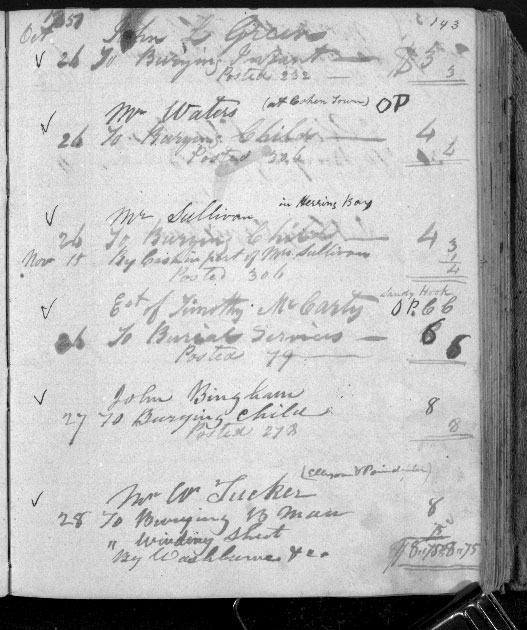 143
Oct. 1857 John Z Green
26 To Burying Infant $5
Posted 232 5
Mr Waters (at Cohen Town) OP
26 To Burying Child 4
Posted 306 4
Mr Sullivan in Herring Bay
26 To Burying Child 4 3
Nov 18 By Cash in part of Mr Sullivan 1
Posted 306 4
Sandy Hook
Est of Timothy McCarty OP. CC
26 To Burial Services 6
Posted 79 6
John Bingham
27 To Burying Child 8
Posted 278 8
Mr Wm Tucker
28 To Burying B Man 8
" Winding Sheet 75
By Washburne & co $8.75 $8.75